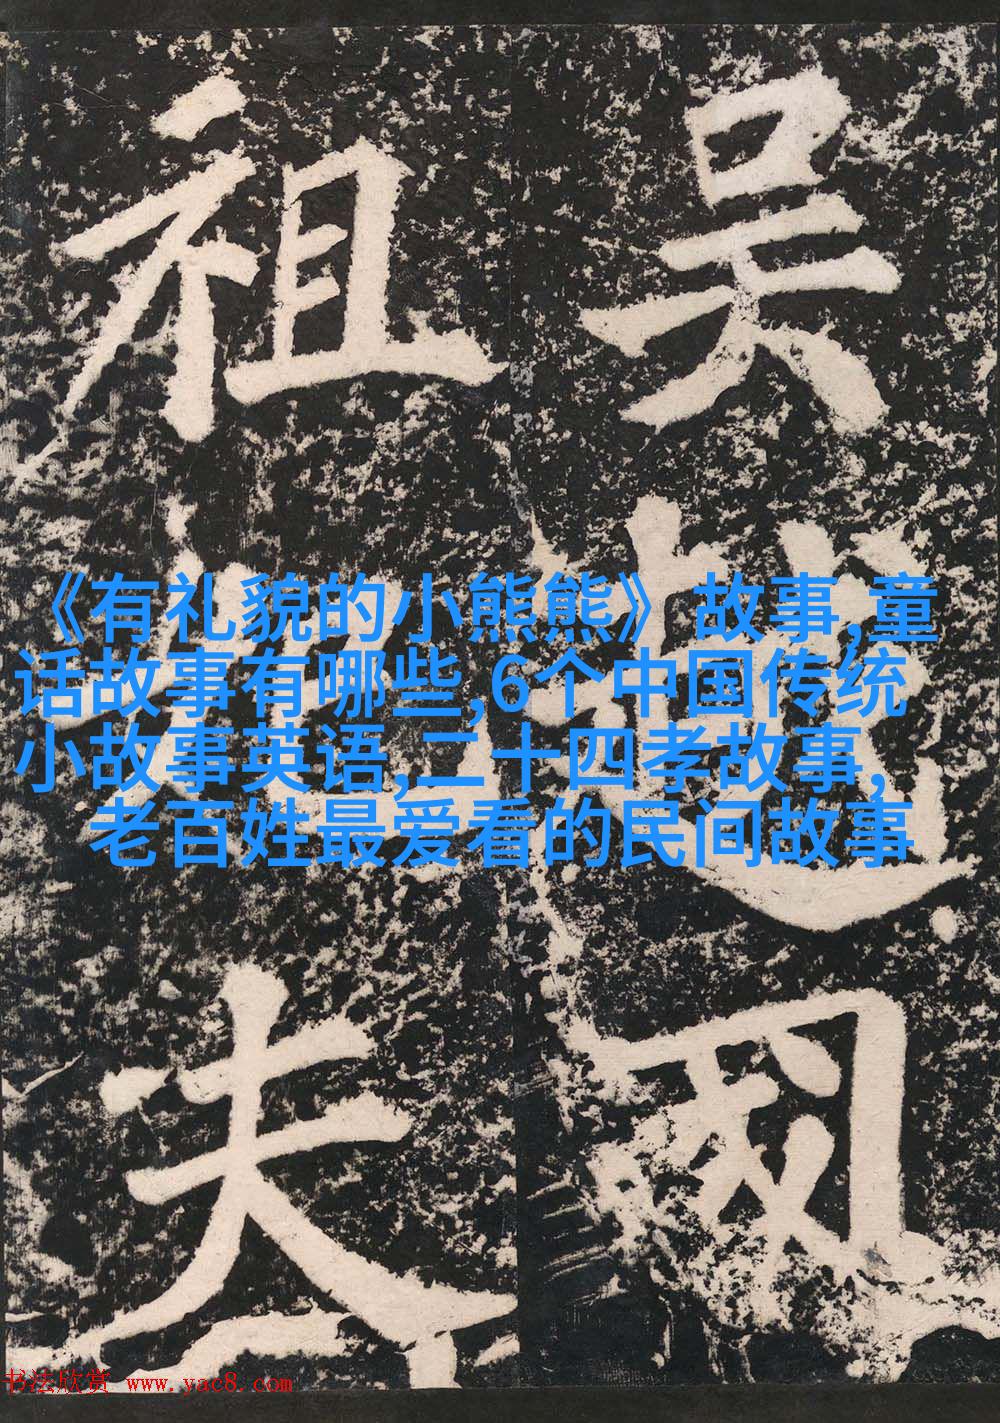 吴越國
祖妃夫
《有礼貌的小熊熊》故事,童
话故事有哪些,6个中国传统
小故事英语,二十四孝故事,
老百姓最爱看的民间故事
书法欣赏 www.yac8.com